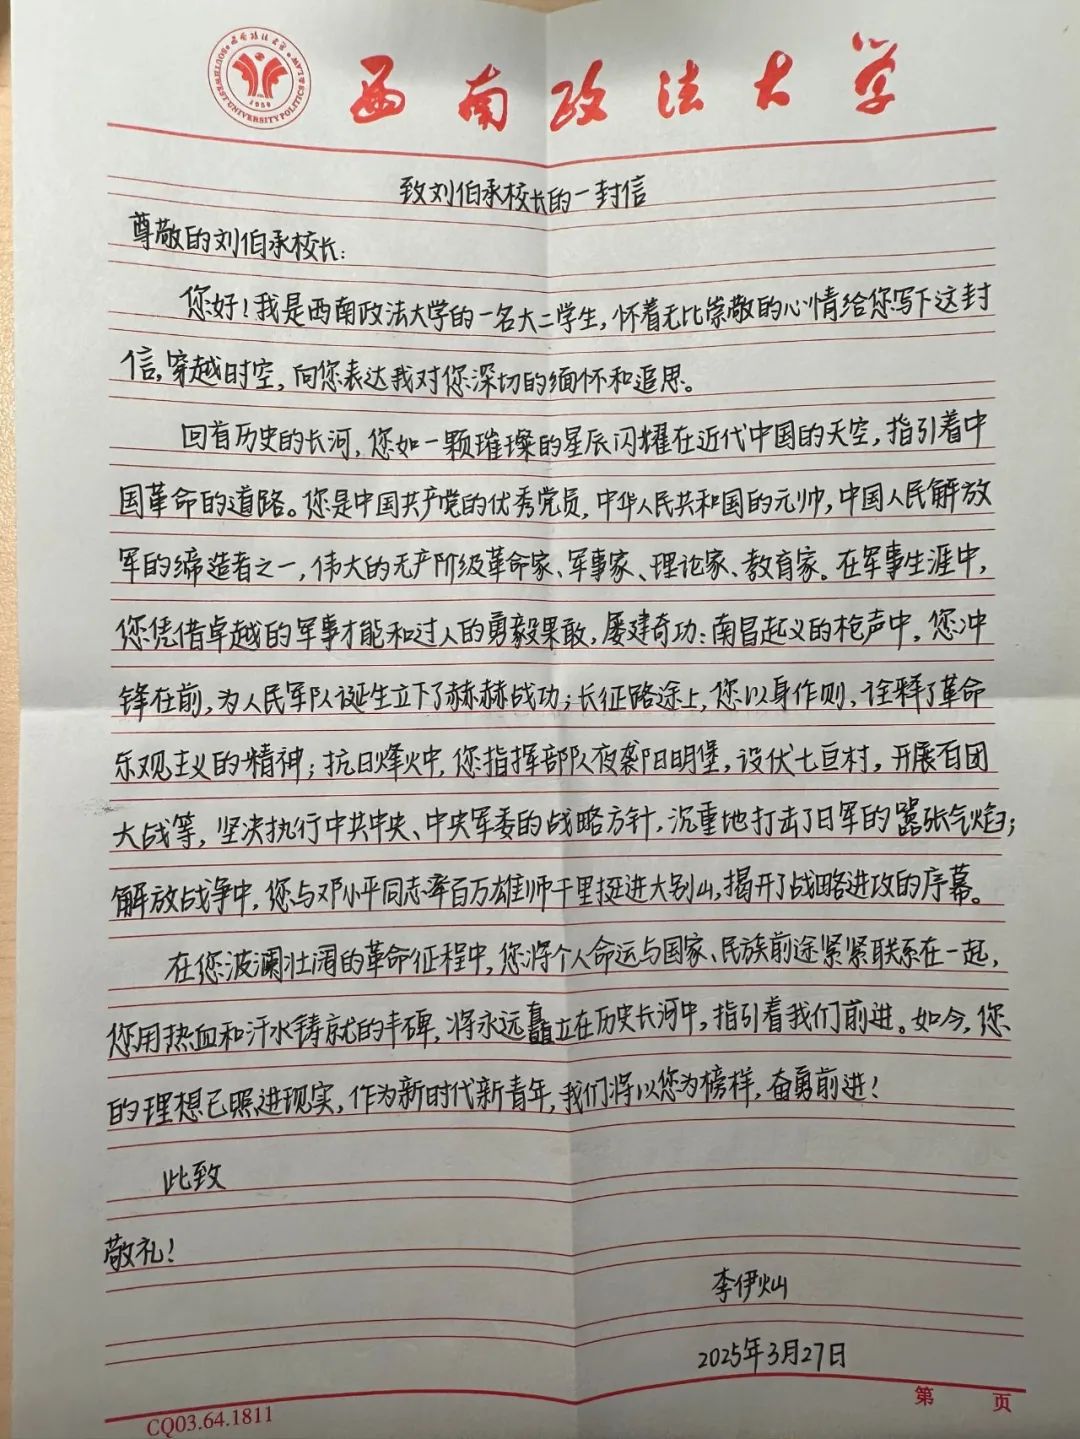 西南政法大学
西南政法大学
SOUTHWEST UNIVERSITY POLITICS & LAW
1950
致刘伯承校长的一封信
尊敬的刘伯承校长:
您好!我是西南政法大学的一名大二学生,怀着无比崇敬的心情给您写下这封
信,穿越时空,向您表达我对您深切的缅怀和追思。
回首历史的长河,您如一颗璀璨的星辰闪耀在近代中国的天空,指引着中
国革命的道路。您是中国共产党的优秀党员,中华人民共和国的元帅,中国人民解放
军的缔造者之一,伟大的无产阶级革命家、军事家、理论家、教育家。在军事生涯中,
您凭借卓越的军事才能和过人的勇毅果敢,屡建奇功:南昌起义的枪声中,您冲
锋在前,为人民军队诞生立下了赫赫战功;长征路途上,您以身作则,诠释了革命
乐观主义的精神;抗日烽火中,您指挥部队夜袭阳明堡,设伏七亘村,开展百团
大战等,坚决执行中共中央、中央军委的战略方针,沉重地打击了日军的嚣张气焰;
解放战争中,您与邓小平同志率百万雄师千里挺进大别山,揭开了战略进攻的序幕。
在您波澜壮阔的革命征程中,您将个人命运与国家、民族前途紧紧联系在一起,
您用热血和汗水铸就的丰碑,将永远矗立在历史长河中,指引着我们前进。如今,您
的理想已照进现实,作为新时代新青年,我们将以您为榜样,奋勇前进!
此致
敬礼!
李伊灿
2025年3月27日
CQ03.64.1811
第 页